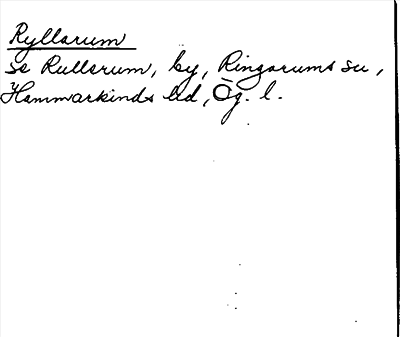 Ryllarum
Se Rullerum, by, Ringarums su,
Hammarkinds hd, Ög. l.